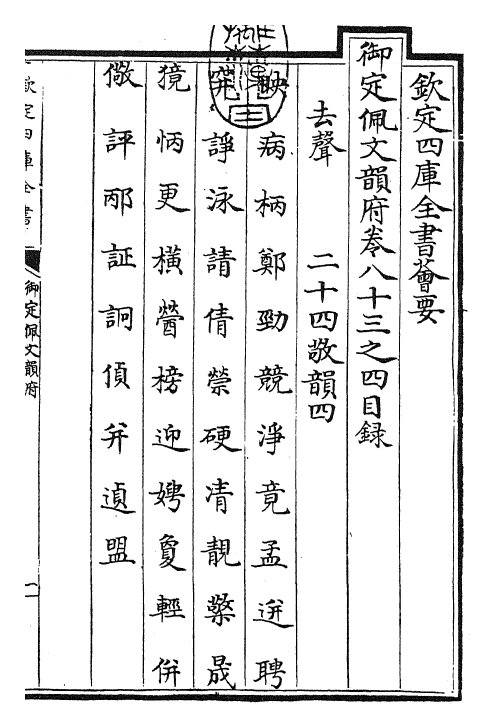 欽定四庫全書薈要
御定佩文韻府卷八十三之四目録
去聲　二十四敬韻四
映病柄鄭勁競淨竟孟迸聘
諍泳請倩縈硬凊靚檠晟
獍怲更橫瀯榜迎娉敻輕併
儆評邴証詗偵并遉盟
欽定四庫全書
御定佩文韻府